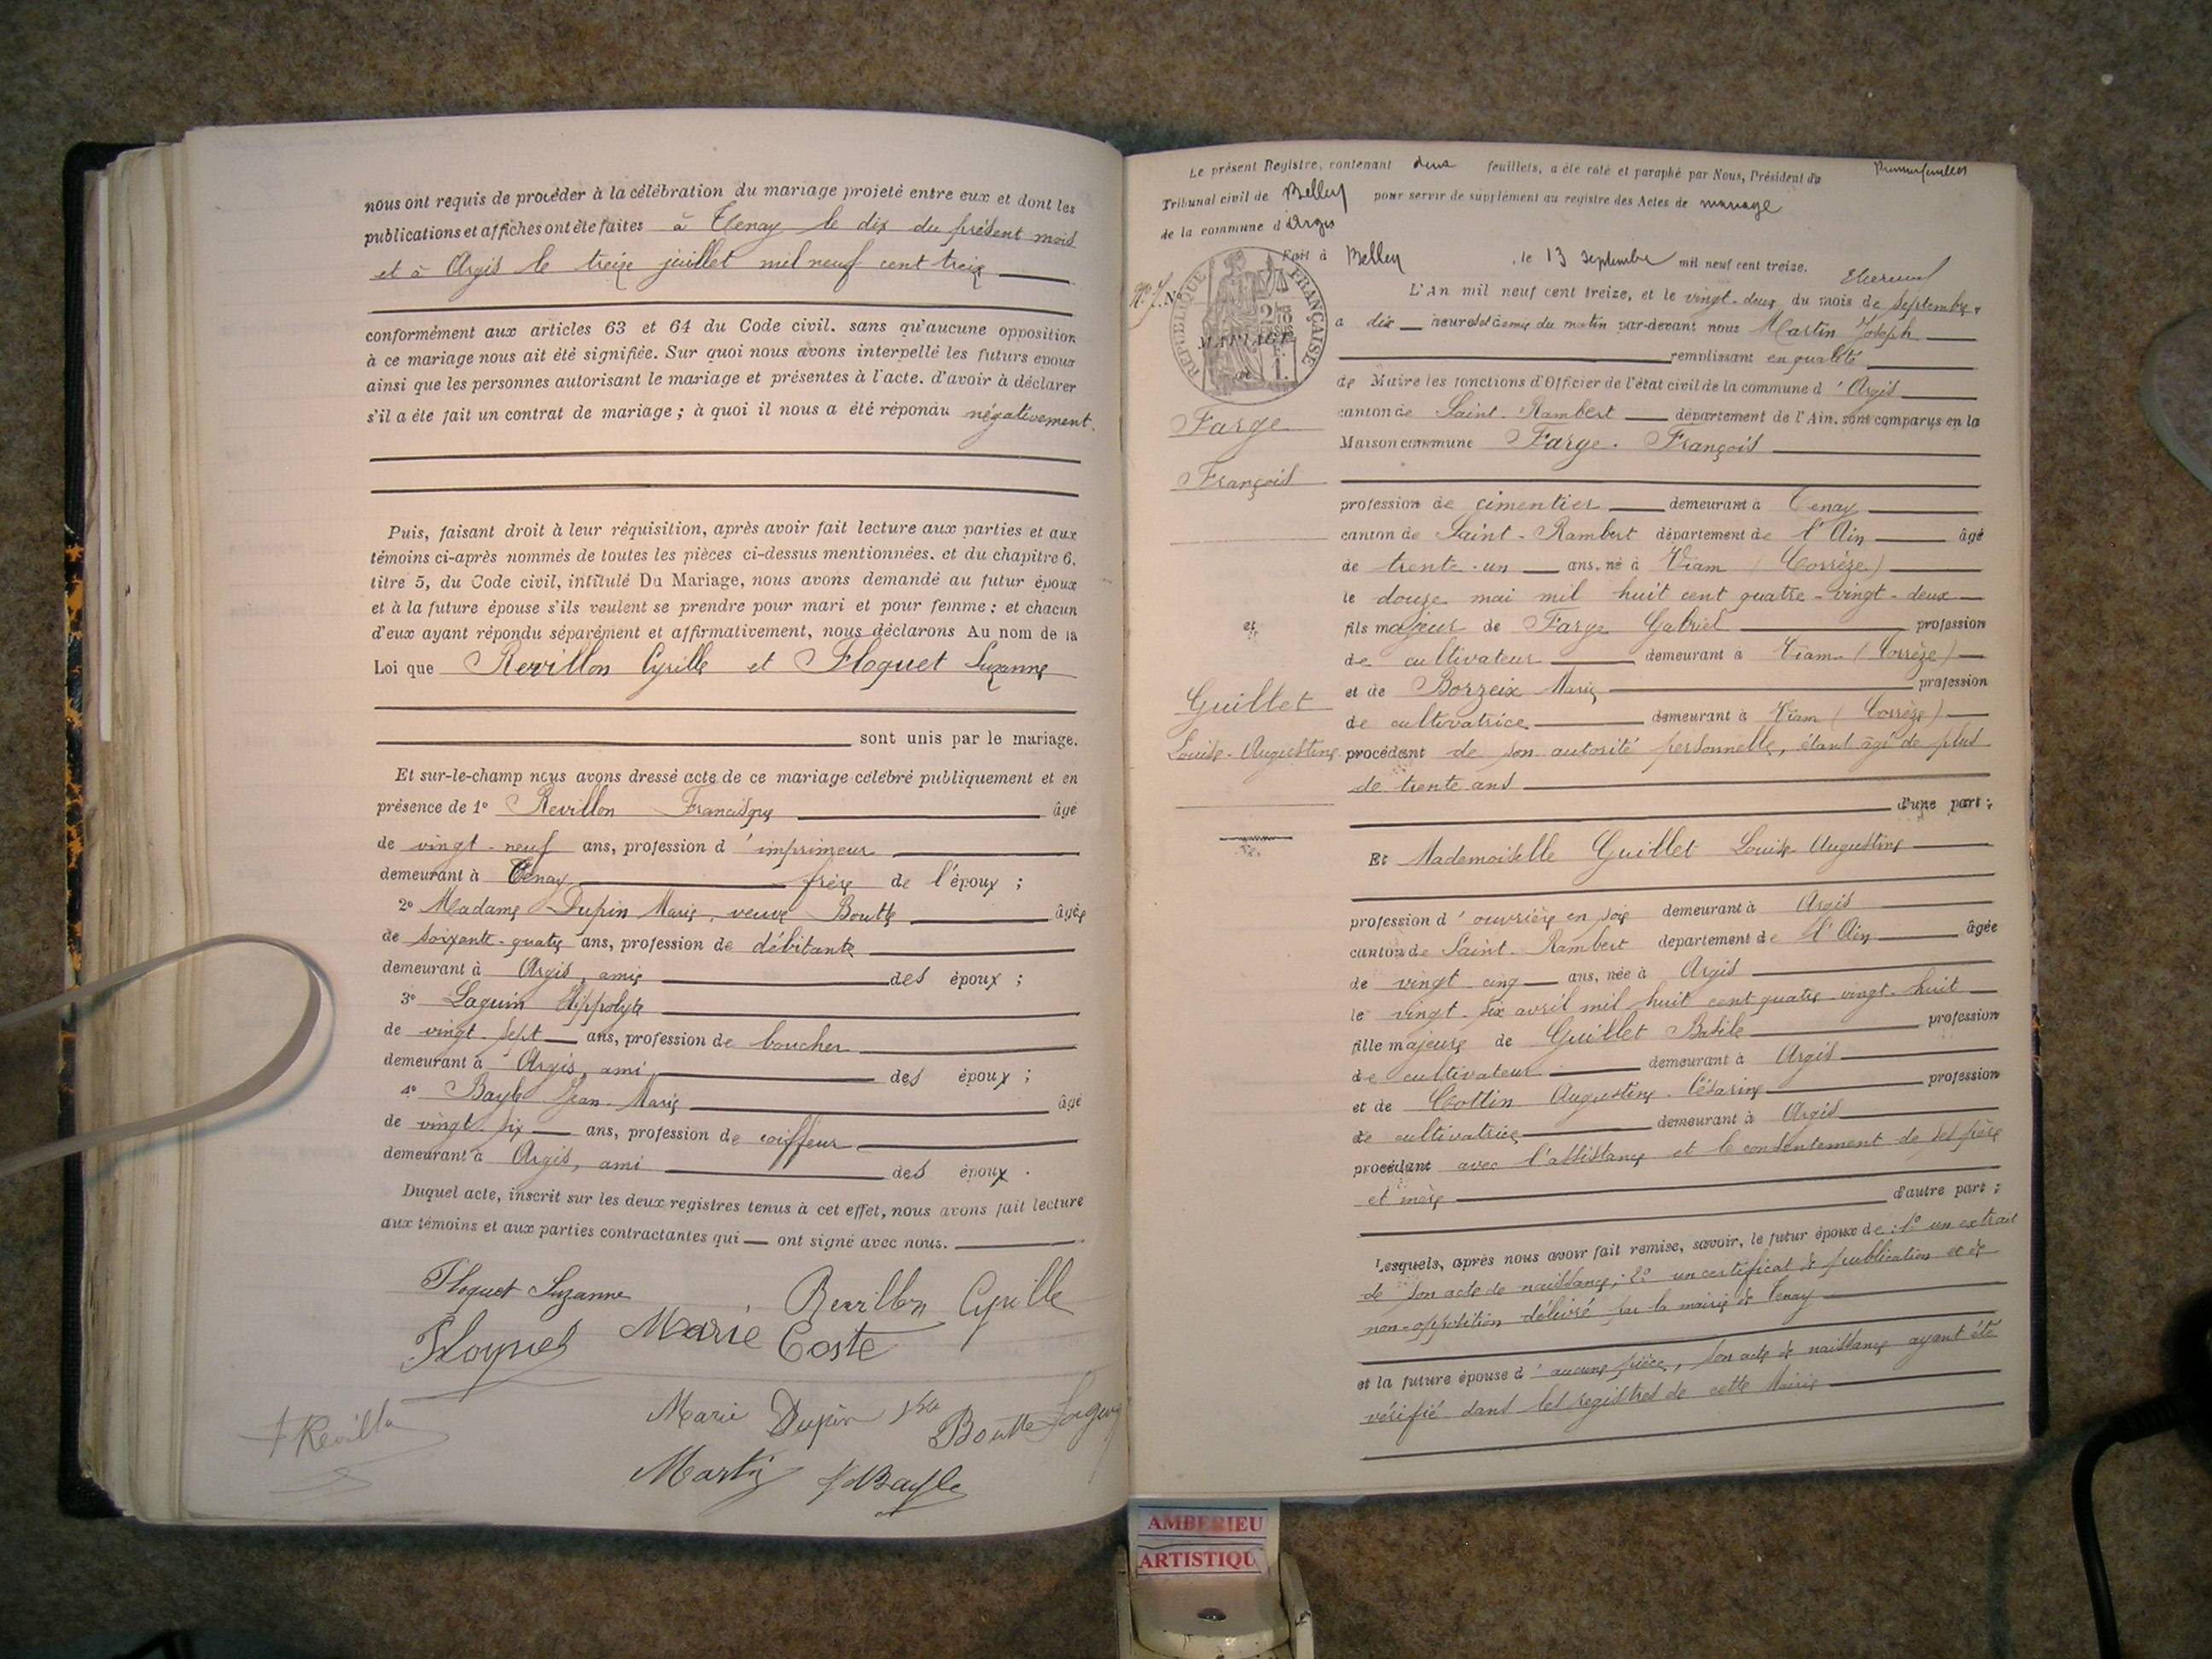 nous ont requis de procéder à la célébration du mariage projeté entre eux et dont les
publications et affiches ont été faites à Tenay le dix du présent mois
et à Argis le treize juillet mil neuf cent treize
conformément aux articles 63 et 64 du Code civil. sans qu'aucune opposition
à ce mariage nous ait été signifiée. Sur quoi nous avons interpellé les futurs époux
ainsi que les personnes autorisant le mariage et présentes à l'acte. d'avoir à déclarer
s'il a été fait un contrat de mariage ; à quoi il nous a été répondu négativement.
Puis, faisant droit à leur réquisition, après avoir fait lecture aux parties et aux
témoins ci-après nommés de toutes les pièces ci-dessus mentionnées. et du chapitre 6,
titre 5, du Code civil, intitulé Du Mariage, nous avons demandé au futur époux
et à la future épouse s'ils veulent se prendre pour mari et pour femme ; et chacun
d'eux ayant répondu séparément et affirmativement, nous déclarons Au nom de la
Loi que Revillon Cyrille et Floquet Suzanne
sont unis par le mariage.
Et sur-le-champ nous avons dressé acte de ce mariage célébré publiquement et en
présence de 1° Revillon Francisque âgé
de vingt-neuf ans, profession d'imprimeur
demeurant à Tenay frère de l'époux ;
2° Madame Dupin Marie, veuve Boutte âgée
de soixante-quatre ans, profession de débitante
demeurant à Argis, amie des époux ;
3° Laguin Hippolyte
de vingt-sept ans, profession de boucher
demeurant à Argis, ami des époux ;
4° Bayle Jean-Marie âgé
de vingt-six ans, profession de coiffeur
demeurant à Argis, ami des époux.
Duquel acte, inscrit sur les deux registres tenus à cet effet, nous avons fait lecture
aux témoins et aux parties contractantes qui ont signé avec nous.
Floquet Suzanne Revillon Cyrille
Floquet Marie Coste
Marie Dupin Boutte
Martin Bayle
Le présent Registre, contenant deux feuillets, a été coté et paraphé par Nous, Président du
Tribunal civil de Belley pour servir de supplément au registre des Actes de mariage
de la commune d'Argis
Fait à Belley, le 13 septembre mil neuf cent treize.
RÉPUBLIQUE FRANÇAISE
N° 7.
MARIAGE
L'An mil neuf cent treize, et le vingt-deux du mois de Septembre
a dix heures et demie du matin par-devant nous Martin Joseph
remplissant en qualité
de Maire les fonctions d'Officier de l'état civil de la commune d'Argis
canton de Saint-Rambert département de l'Ain. sont comparus en la
Maison commune Farge François
Farge
François
et
Guillet
Louise-Augustine
profession de cimentier demeurant à Tenay
canton de Saint-Rambert département de l'Ain âgé
de trente-un ans, né à Viam (Corrèze)
le douze mai mil huit cent quatre-vingt-deux
fils majeur de Farge Gabriel profession
de cultivateur demeurant à Viam (Corrèze)
et de Borzeix Marie profession
de cultivatrice demeurant à Viam (Corrèze)
procédant de son autorité personnelle, étant âgé de plus
de trente ans
d'une part ;
Et Mademoiselle Guillet Louise Augustine
profession d'ouvrière en soie demeurant à Argis
canton de Saint-Rambert département de l'Ain âgée
de vingt cinq ans, née à Argis
le vingt-six avril mil huit cent quatre-vingt-huit
fille majeure de Guillet Basile profession
de cultivateur demeurant à Argis
et de Cottin Augustine Césarine profession
de cultivatrice demeurant à Argis
procédant avec l'assistance et le consentement de ses père
et mère
d'autre part ;
Lesquels, après nous avoir fait remise, savoir, le futur époux de : 1° un extrait
de son acte de naissance ; 2° un certificat de publication et de
non-opposition délivré par la mairie de Tenay
et la future épouse d'aucune pièce, son acte de naissance ayant été
vérifié dans les registres de cette Mairie
AMBERIEU
ARTISTIQU